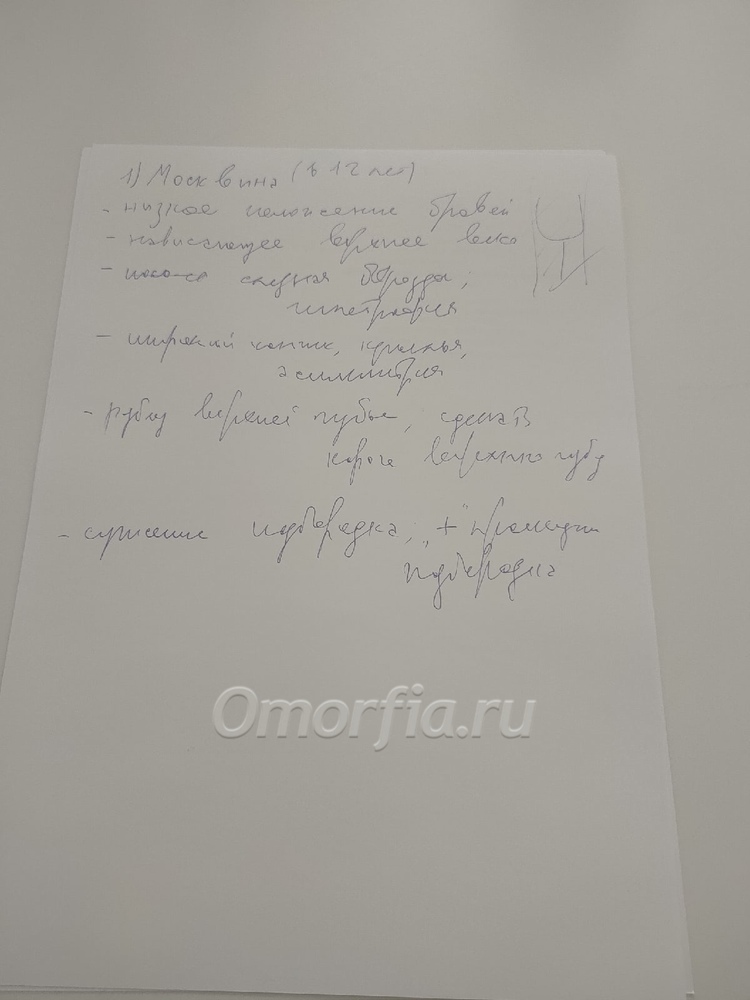 1) Москвина (в 12 лет)
- низкое положение бровей
- нависающее верхнее веко
- носо-слезная борозда;
- широкий кончик, крылья,
асимметрия
- рубец верхней губы, сделать
короче верхнюю губу
- сужение подбородка; "+" проекции
подбородка
Omorfia.ru